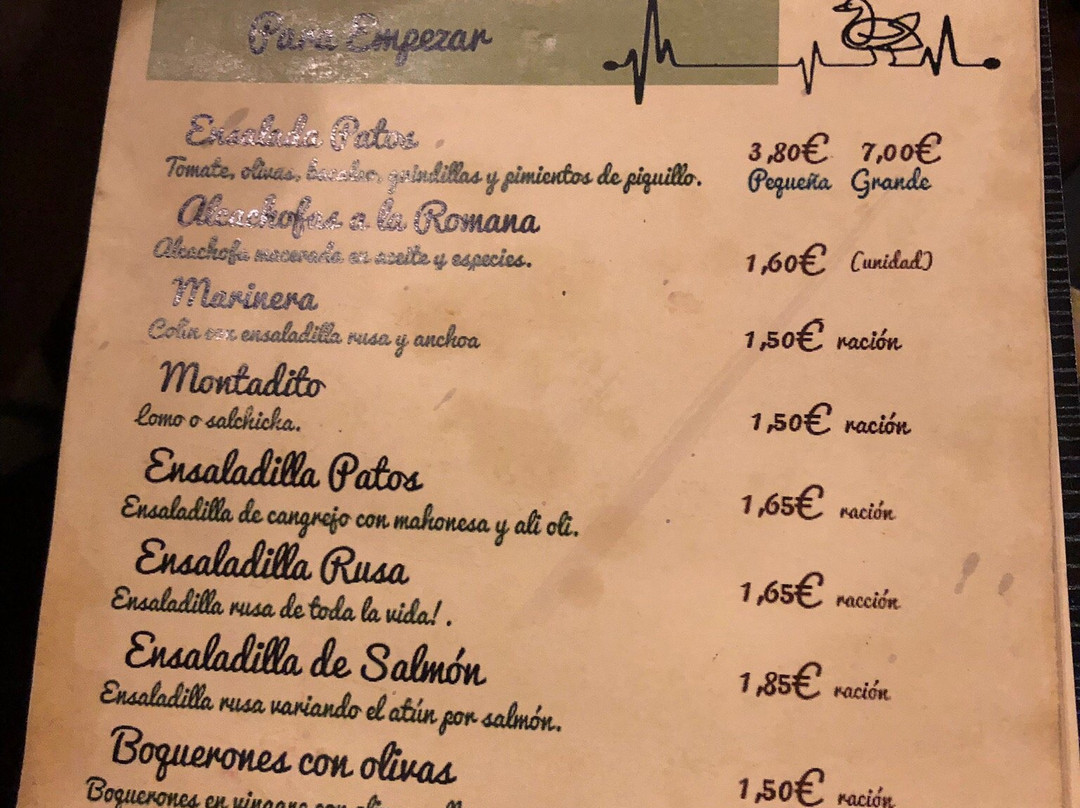 Para Empezar
Ensalada Patos 3,80€ 7,00€
Tomate, olivas, bacalao, guindillas y pimientos de piquillo. Pequeña Grande
Alcachofas a la Romana
Alcachofa macerada en aceite y especies. 1,60€ (unidad)
Marinera
Colín con ensaladilla rusa y anchoa 1,50€ ración
Montadito
Lomo o salchicha. 1,50€ ración
Ensaladilla Patos
Ensaladilla de cangrejo con mahonesa y ali oli. 1,65€ ración
Ensaladilla Rusa
Ensaladilla rusa de toda la vida! . 1,65€ racción
Ensaladilla de Salmón
Ensaladilla rusa variando el atún por salmón. 1,85€ ración
Boquerones con olivas
Boquerones en vinagre con 1,50€ ración